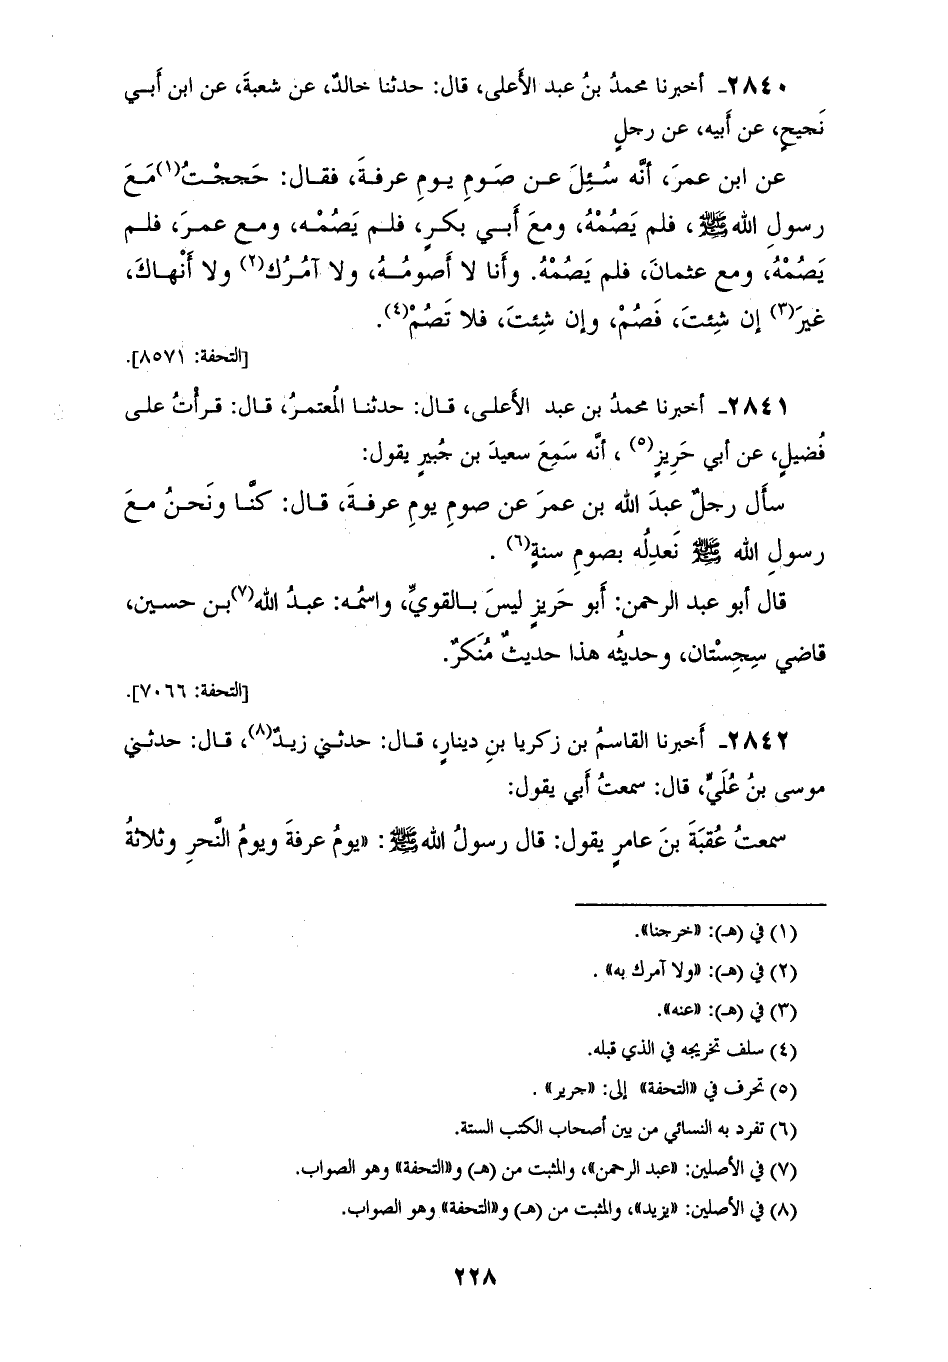 ٢٨٤٠ـ أخبرنا محمدُ بنُ عبد الأَعلى، قال: حدثنا خالدٌ، عن شعبةَ، عن ابن أَبي
نَجيحٍ، عن أَبيه، عن رجلٍ
عن ابن عمرَ، أنَّه سُئِلَ عن صَومِ يومِ عرفةَ، فقال: حَججْتُ(١)مَعَ
رسولِ الله ﷺ، فلم يَصُمْهُ، ومعَ أَبي بكرٍ، فلم يَصُمْه، ومع عمرَ، فلم
يَصُمْهُ، ومع عثمانَ، فلم يَصُمْهُ. وأَنا لا أَصومُهُ، ولا آمُرُك(٢) ولا أَنْهاكَ،
غيرَ(٣) إن شِئتَ، فَصُمْ، وإن شِئتَ، فلا تَصُمْ(٤).
[التحفة: ٨٥٧١].
٢٨٤١ـ أخبرنا محمدُ بن عبد الأَعلى، قال: حدثنا المُعتمرُ، قال: قرأْتُ على
فُضيلٍ، عن أبي حَرِيزٍ(٥)، أنَّه سَمِعَ سعيدَ بن جُبيرٍ يقول:
سأَل رجلٌ عبدَ الله بن عمرَ عن صومِ يومِ عرفةَ، قال: كنَّا ونَحنُ معَ
رسولِ الله ﷺ نَعدِلُه بصومِ سنةٍ(٦) .
قال أبو عبد الرحمن: أَبو حَريزٍ ليسَ بالقويِّ، واسمُه: عبدُ الله(٧)بن حسين،
قاضي سِجِسْتان، وحديثُه هذا حديثٌ مُنكَرٌ.
[التحفة: ٧٠٦٦].
٢٨٤٢ـ أَخبرنا القاسمُ بن زكريا بنِ دينارٍ، قال: حدثني زيدٌ(٨)، قال: حدثني
موسى بنُ عُلَيٍّ، قال: سمعتُ أَبي يقول:
سمعتُ عُقبَةَ بنَ عامرٍ يقول: قال رسولُ الله ﷺ: «يومُ عرفةَ ويومُ النَّحرِ وثلاثةُ
(١) في (هـ): «خرجنا».
(٢) في (هـ): «ولا آمرك به» .
(٣) في (هـ): «عنه».
(٤) سلف تخريجه في الذي قبله.
(٥) تحرف في «التحفة» إلى: «جرير» .
(٦) تفرد به النسائي من بين أصحاب الكتب الستة.
(٧) في الأصلين: «عبد الرحمن»، والمثبت من (هـ) و«التحفة» وهو الصواب.
(٨) في الأصلين: «يزيد»، والمثبت من (هـ) و«التحفة» وهو الصواب.
٢٢٨